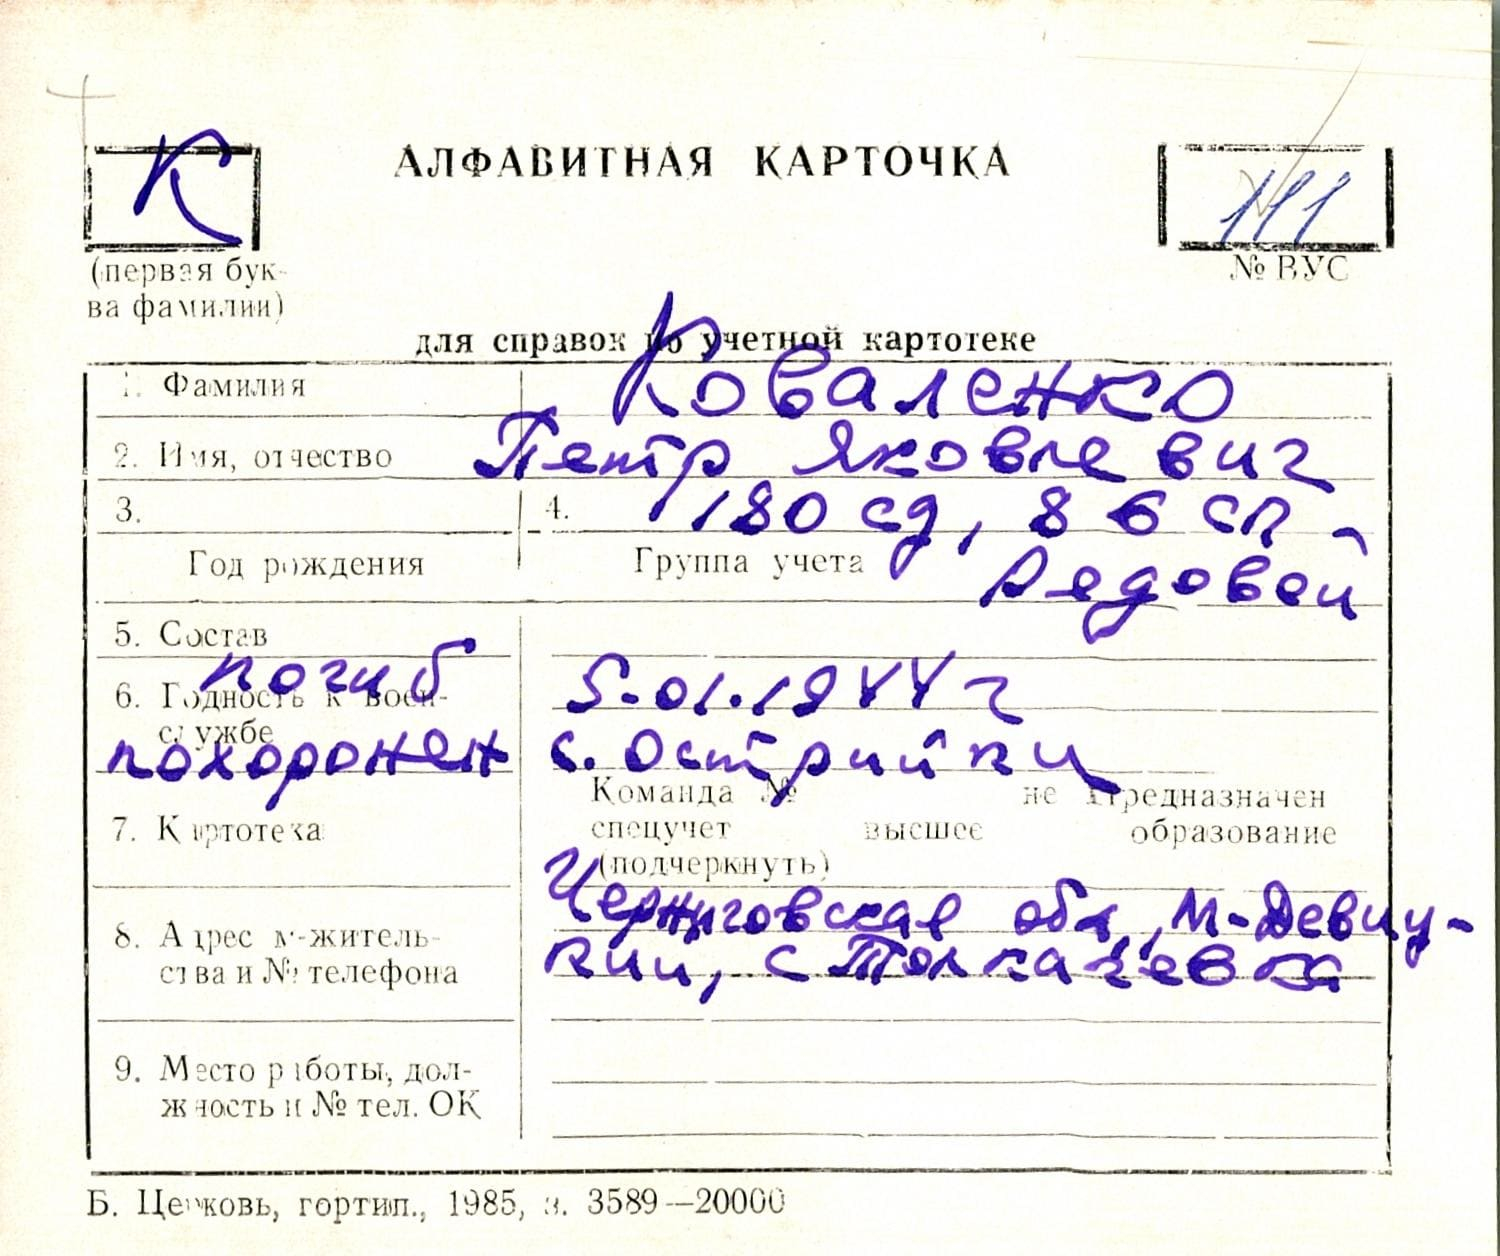 К
АЛФАВИТНАЯ КАРТОЧКА
111
(первая бук-
ва фамилии)
№ ВУС
для справок по учетной картотеке
1. Фамилия Коваленко
2. Имя, отчество Петр Яковлевич
3. 4. 180 сд, 86 сп
Год рождения Группа учета Рядовой
5. Состав
погиб 5.01.1944 г
6. Годность к воен-
службе
похоронен с. Острийки
Команда № не предназначен
7. Картотека спецучет высшее образование
(подчеркнуть)
Черниговская обл., М-Девиц-
8. Адрес м-житель-
кий, с Толкачевка
ства и № телефона
9. Место работы, дол-
жность и № тел. ОК
Б. Церковь, гортип., 1985, з. 3589—20000